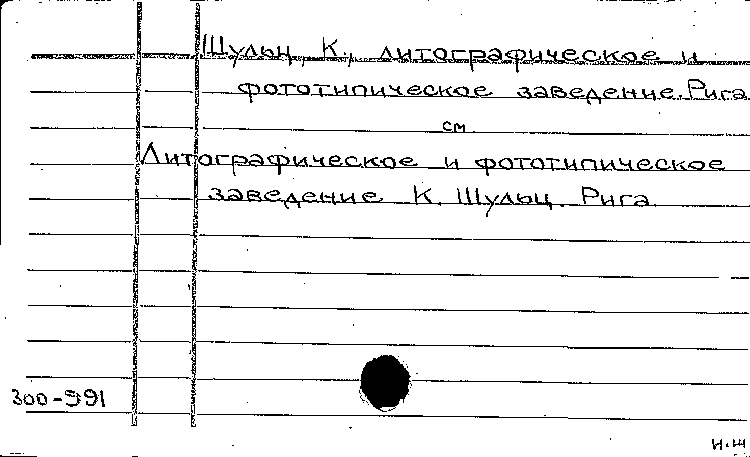 Шульц, К., литографическое и
фототипическое заведение. Рига
см.
Литографическое и фототипическое
заведение К. Шульц. Рига.
300-991
И-Ш